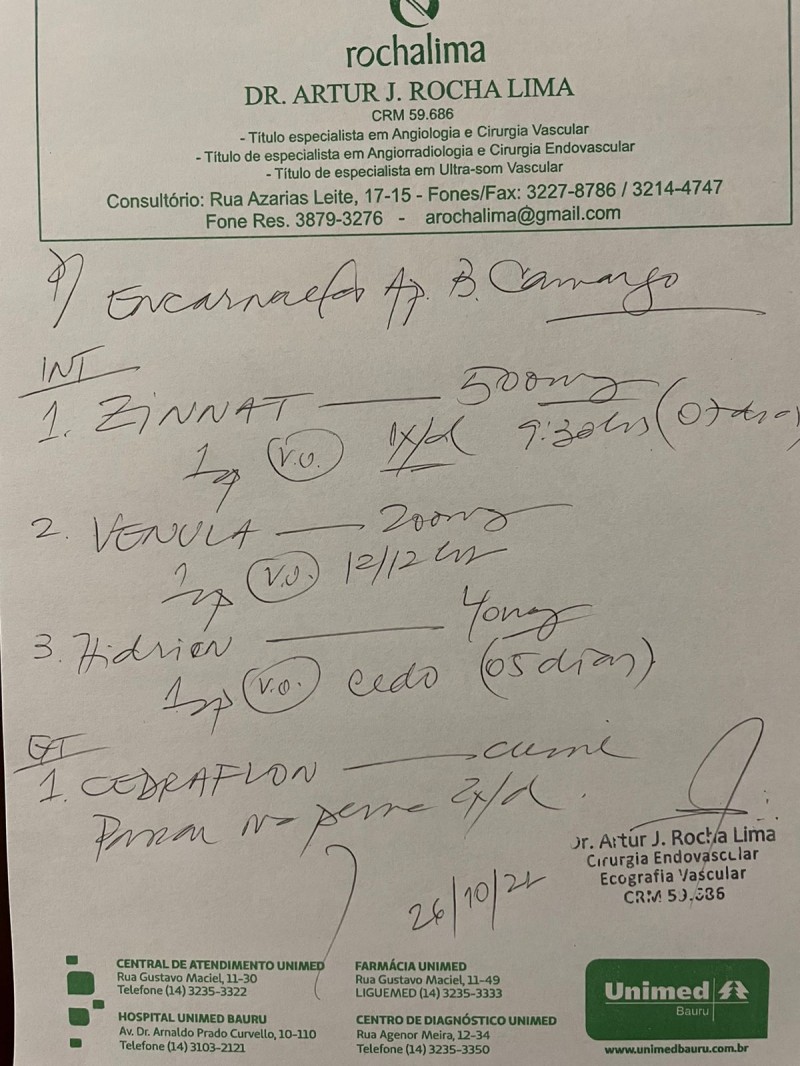 rochalima
DR. ARTUR J. ROCHA LIMA
CRM 59.686
- Título especialista em Angiologia e Cirurgia Vascular
- Título de especialista em Angiorradiologia e Cirurgia Endovascular
- Título de especialista em Ultra-som Vascular
Consultório: Rua Azarias Leite, 17-15 - Fones/Fax: 3227-8786 / 3214-4747
Fone Res. 3879-3276 - arochalima@gmail.com
Ap. B. Camargo
INT
1. ZINNAT 500mg
1 V.O. 1x/d 9:30hs (07 dias)
2. VENULA 200mg
1 V.O. 12/12 hs
3. Hidrion 40mg
1 V.O. cedo (05 dias)
EXT
1. CEDRAFLON creme
Passar na perna 2x/d.
Dr. Artur J. Rocha Lima
Cirurgia Endovascular
Ecografia Vascular
CRM 59.686
26/10/21
CENTRAL DE ATENDIMENTO UNIMED
Rua Gustavo Maciel, 11-30
Telefone (14) 3235-3322
HOSPITAL UNIMED BAURU
Av. Dr. Arnaldo Prado Curvello, 10-110
Telefone (14) 3103-2121
FARMÁCIA UNIMED
Rua Gustavo Maciel, 11-49
LIGUEMED (14) 3235-3333
CENTRO DE DIAGNÓSTICO UNIMED
Rua Agenor Meira, 12-34
Telefone (14) 3235-3350
Unimed
Bauru
www.unimedbauru.com.br